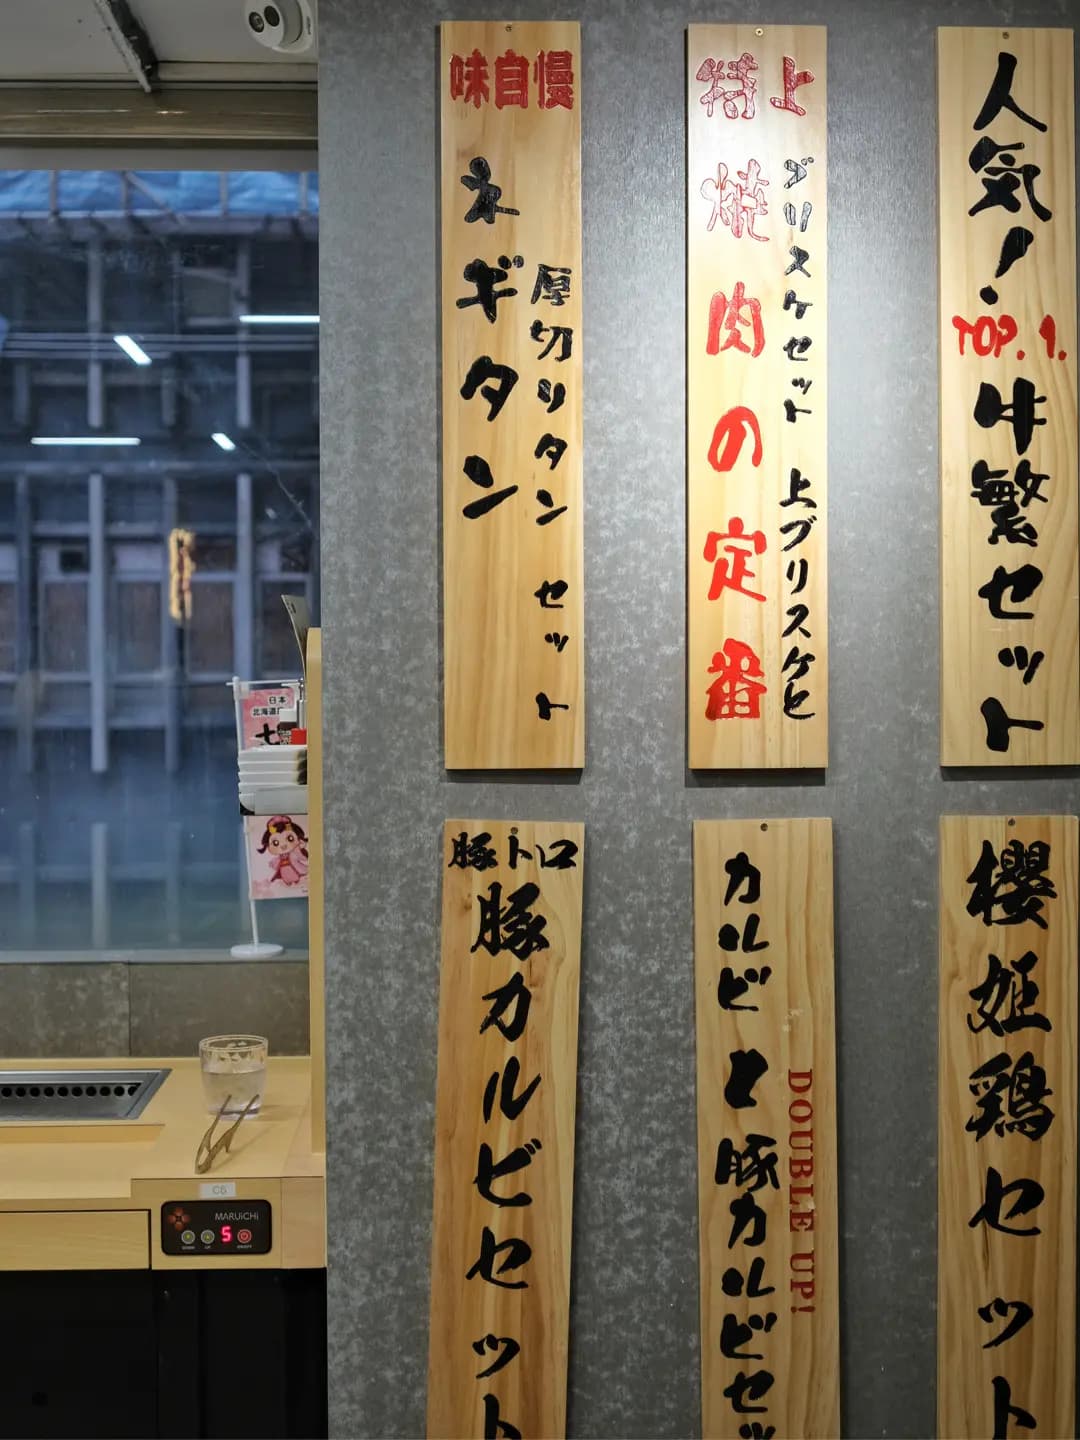 味自慢
ネギタン
厚切りタン セット
特上
焼肉の定番
ブリスケセット 上ブリスケと
人気!
TOP.1.
牛繁セット
豚トロ
豚カルビセット
カルビと豚カルビセッ
DOUBLE UP!
櫻姫鶏セット
日本
北海道
七
MARUiCHi
5